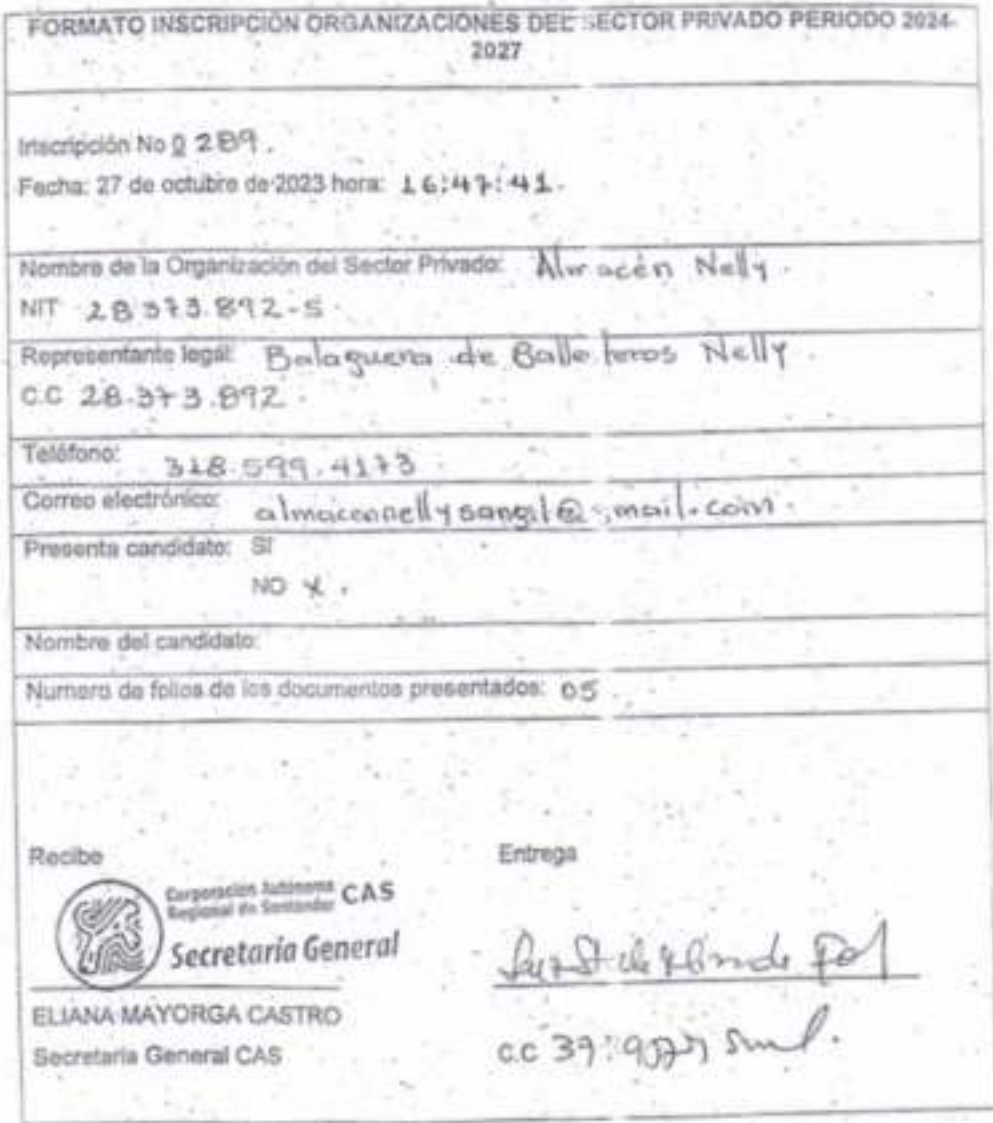 FORMATO INSCRIPCIÓN ORGANIZACIONES DEL SECTOR PRIVADO PERIODO 2024-
2027
Inscripción No 0 289.
Fecha: 27 de octubre de 2023 hora: 16:47:41.
Nombre de la Organización del Sector Privado: Almacén Nelly.
NIT 28.373.892-5.
Representante legal: Balaguera de Ballesteros Nelly.
C.C 28.373.892.
Teléfono: 318.599.4173
Correo electrónico: almacennellysangil@gmail.com.
Presenta candidato: SI
NO X.
Nombre del candidato:
Numero de folios de los documentos presentados: 05.
Recibe Entrega
Corporación Autónoma
Regional de Santander CAS
Secretaria General
ELIANA MAYORGA CASTRO
Secretaria General CAS
c.c